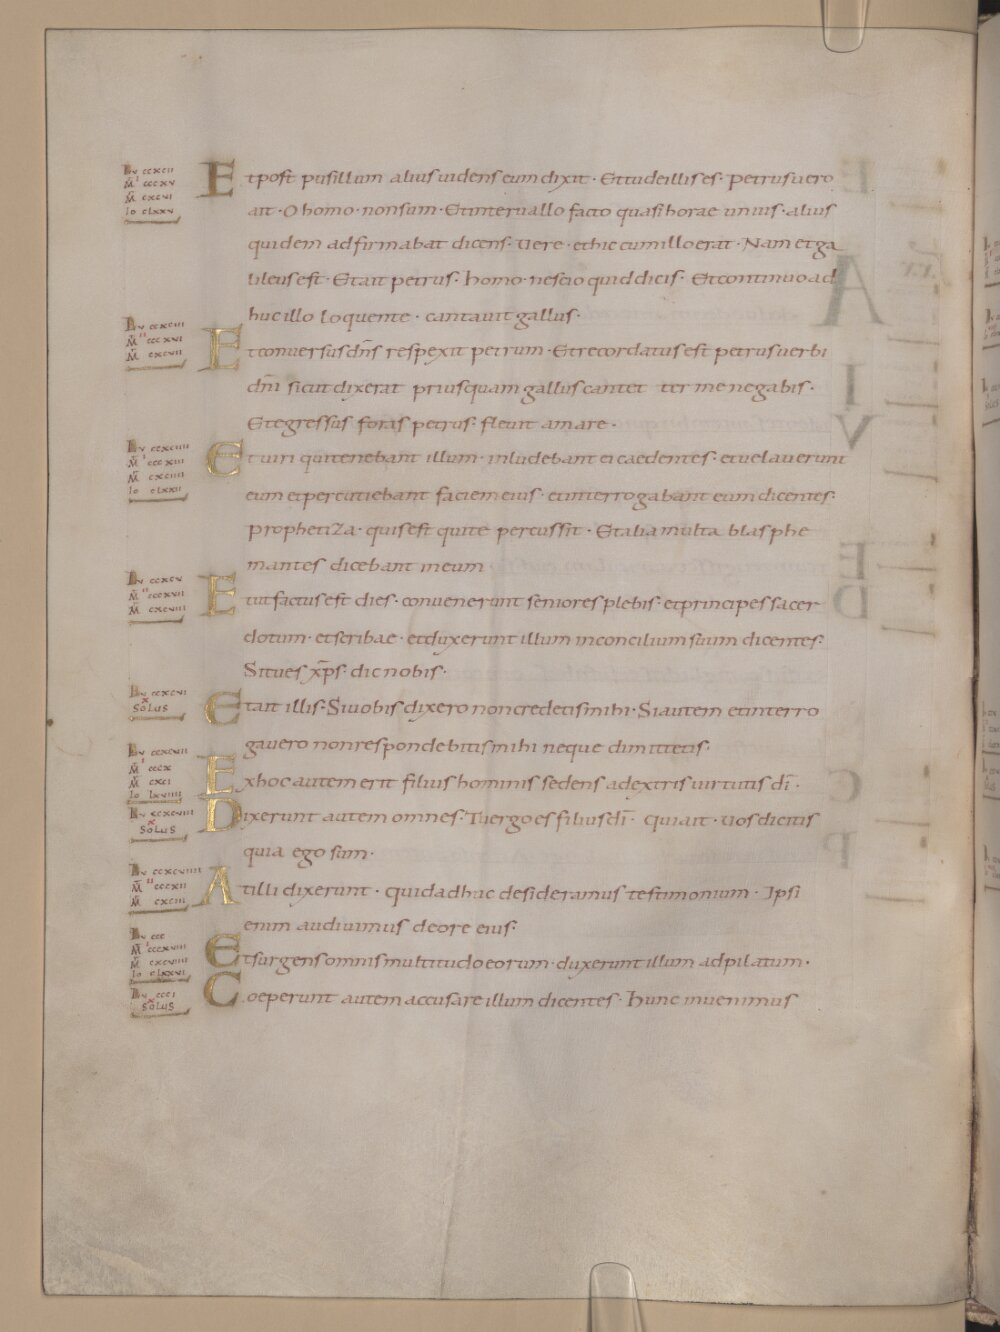 Lu ccxcii
M͞ ccccxv
M͞ cxcvi
Io clxxv
Et post pusillum alius uidens eum dixit · Et tu de illis es · Petrus uero
ait · O homo · non sum · Et interuallo facto quasi horae unius · alius
quidem adfirmabat dicens · Uere · et hic cum illo erat · Nam et ga
lileus est · Et ait petrus · homo · nescio quid dicis · Et continuo ad
huc illo loquente · cantauit gallus ·
Lu ccxciii
Et conuersus dn̄s respexit petrum · Et recordatus est petrus uerbi
dn̄i sicut dixerat priusquam gallus cantet ter me negabis ·
Et egressus foras petrus · fleuit amare ·
Lu ccxciiii
Io clxxii
Et uiri qui tenebant illum · inludebant ei caedentes · et uelauerunt
eum et percutiebant faciem eius · et interrogabant eum dicentes ·
prophetiza · quis est qui te percussit · Et alia multa blasphe
mantes dicebant in eum
Lu ccxcv
M͞ cxcviii
Et ut factus est dies · conuenerunt seniores plebis · et principes sacer
dotum · et scribae · et duxerunt illum in concilium suum dicentes ·
Si tu es xp̄s · dic nobis ·
Lu ccxcvi
x
SOLUS
Et ait illis · Si uobis dixero non credetis mihi · Si autem et interro
gauero non respondebitis mihi neque dimittetis ·
Lu ccxcvii
M͞ cccx
M͞ cxci
Io lxviiii
Ex hoc autem erit filius hominis sedens a dextris uirtutis dī ·
Lu ccxcviii
x
SOLUS
Dixerunt autem omnes · Tu ergo es filius dī · qui ait · Uos dicitis
quia ego sum ·
Lu ccxcviiii
M͞ cccxii
M͞ cxciii
At illi dixerunt · quid adhuc desideramus testimonium · Ipsi
enim audiuimus de ore eius ·
Lu ccc
Io clxxvi
Et surgens omnis multitudo eorum · duxerunt illum ad pilatum ·
Lu ccci
x
SOLUS
Coeperunt autem accusare illum dicentes · Hunc inuenimus